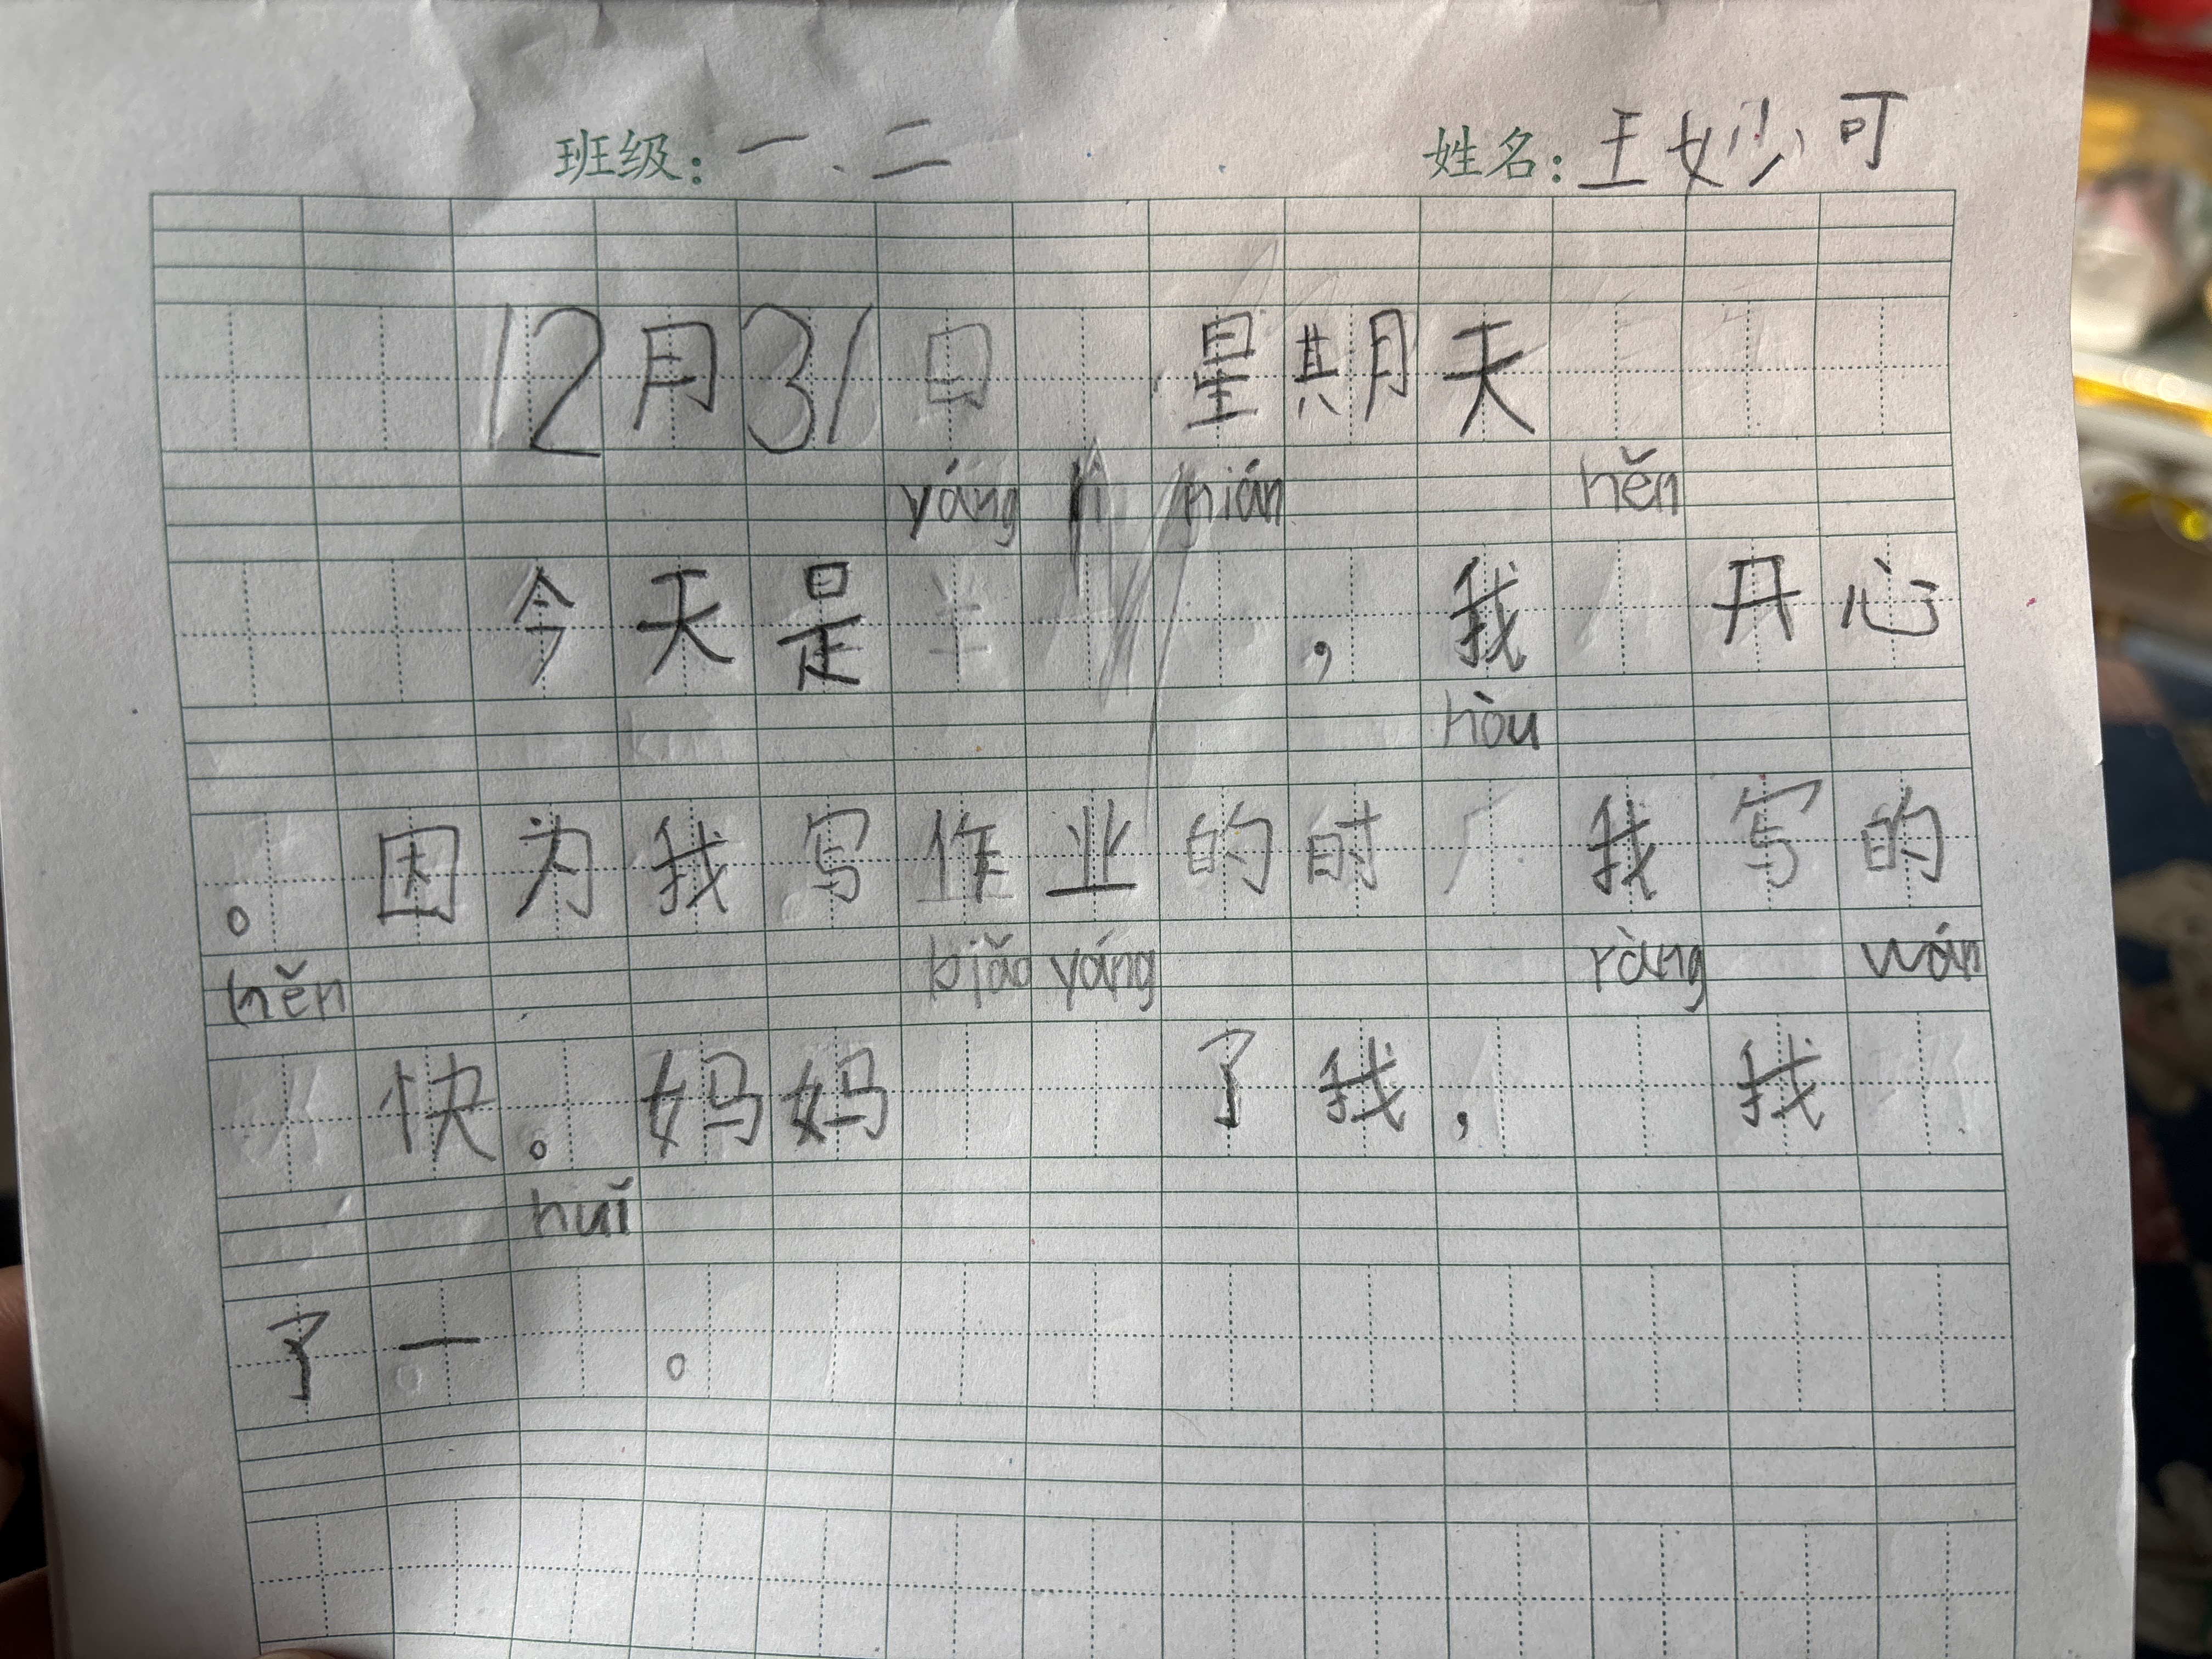 班级：一.二 姓名：王妙可
12月31日 星期天
yáng lì nián hěn
今天是 ，我 开心
hòu
。因为我写作业的时 我写的
hěn biǎo yáng ràng wán
快。妈妈 了我， 我
huǐ
了一 。